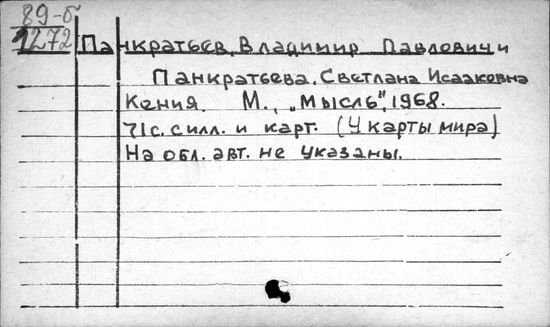 89-б
1272
Панкратьев, Владимир Павлович и
Панкратьева, Светлана Исааковна
Кения. М., „Мысль", 1968.
71 с. с илл. и карт. (У карты мира)
На обл. авт. не указаны.